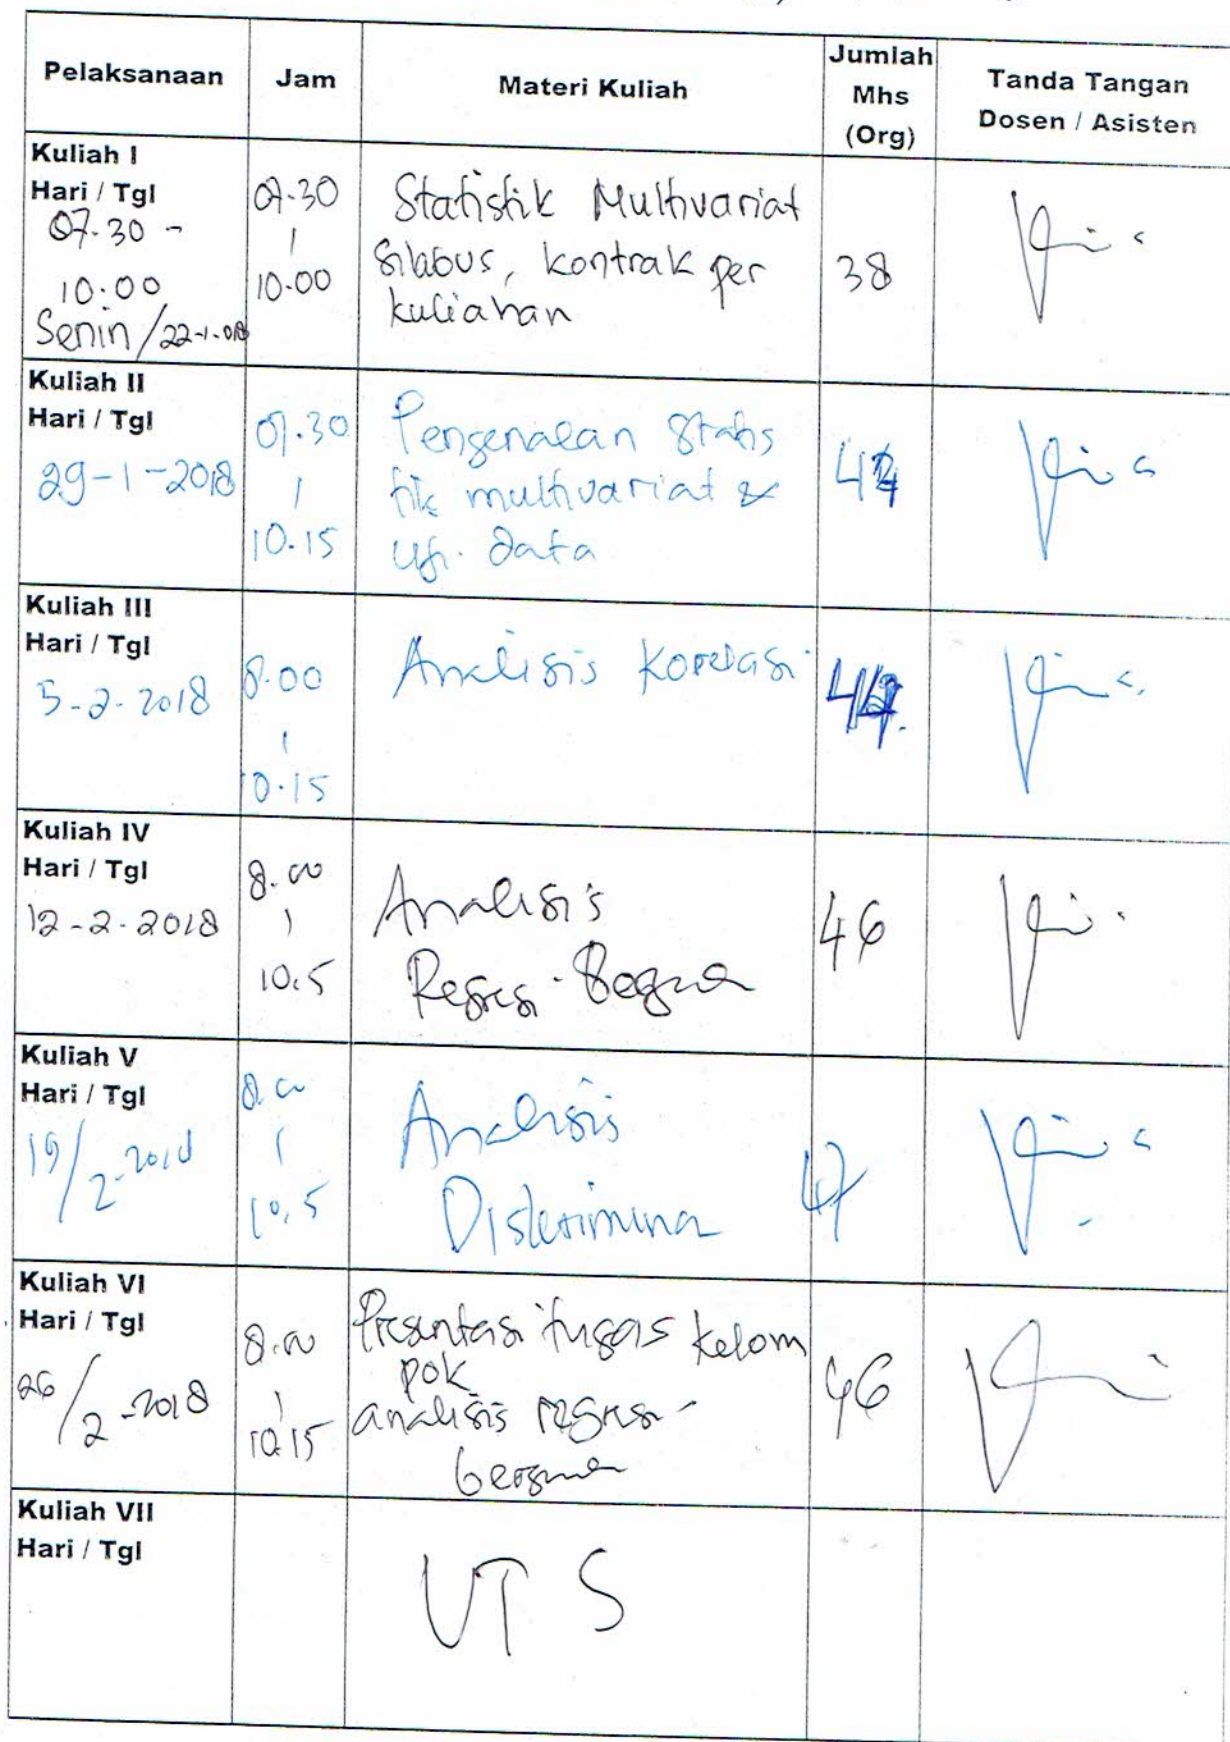 Pelaksanaan
Jam
Materi Kuliah
Jumlah
Mhs
(Org)
Tanda Tangan
Dosen / Asisten
Kuliah I
Hari / Tgl
07.30 -
10:00
Senin / 22-1-018
07.30
|
10.00
Statistik Multivariat
Silabus, kontrak per
kuliahan
38
Kuliah II
Hari / Tgl
29-1-2018
07.30
|
10.15
Pengenalan Statis
tik multivariat &
uji. data
Kuliah III
Hari / Tgl
5-2-2018
8.00
|
10.15
Analisis Korelasi
Kuliah IV
Hari / Tgl
12-2-2018
8.00
|
10.5
Analisis
Regresi
46
Kuliah V
Hari / Tgl
19/2-2018
8.00
|
10.5
Analisis
Diskrimina
47
Kuliah VI
Hari / Tgl
26/2-2018
8.00
|
10.15
Presentasi tugas kelom
pok
analisis regresi
46
Kuliah VII
Hari / Tgl
UTS